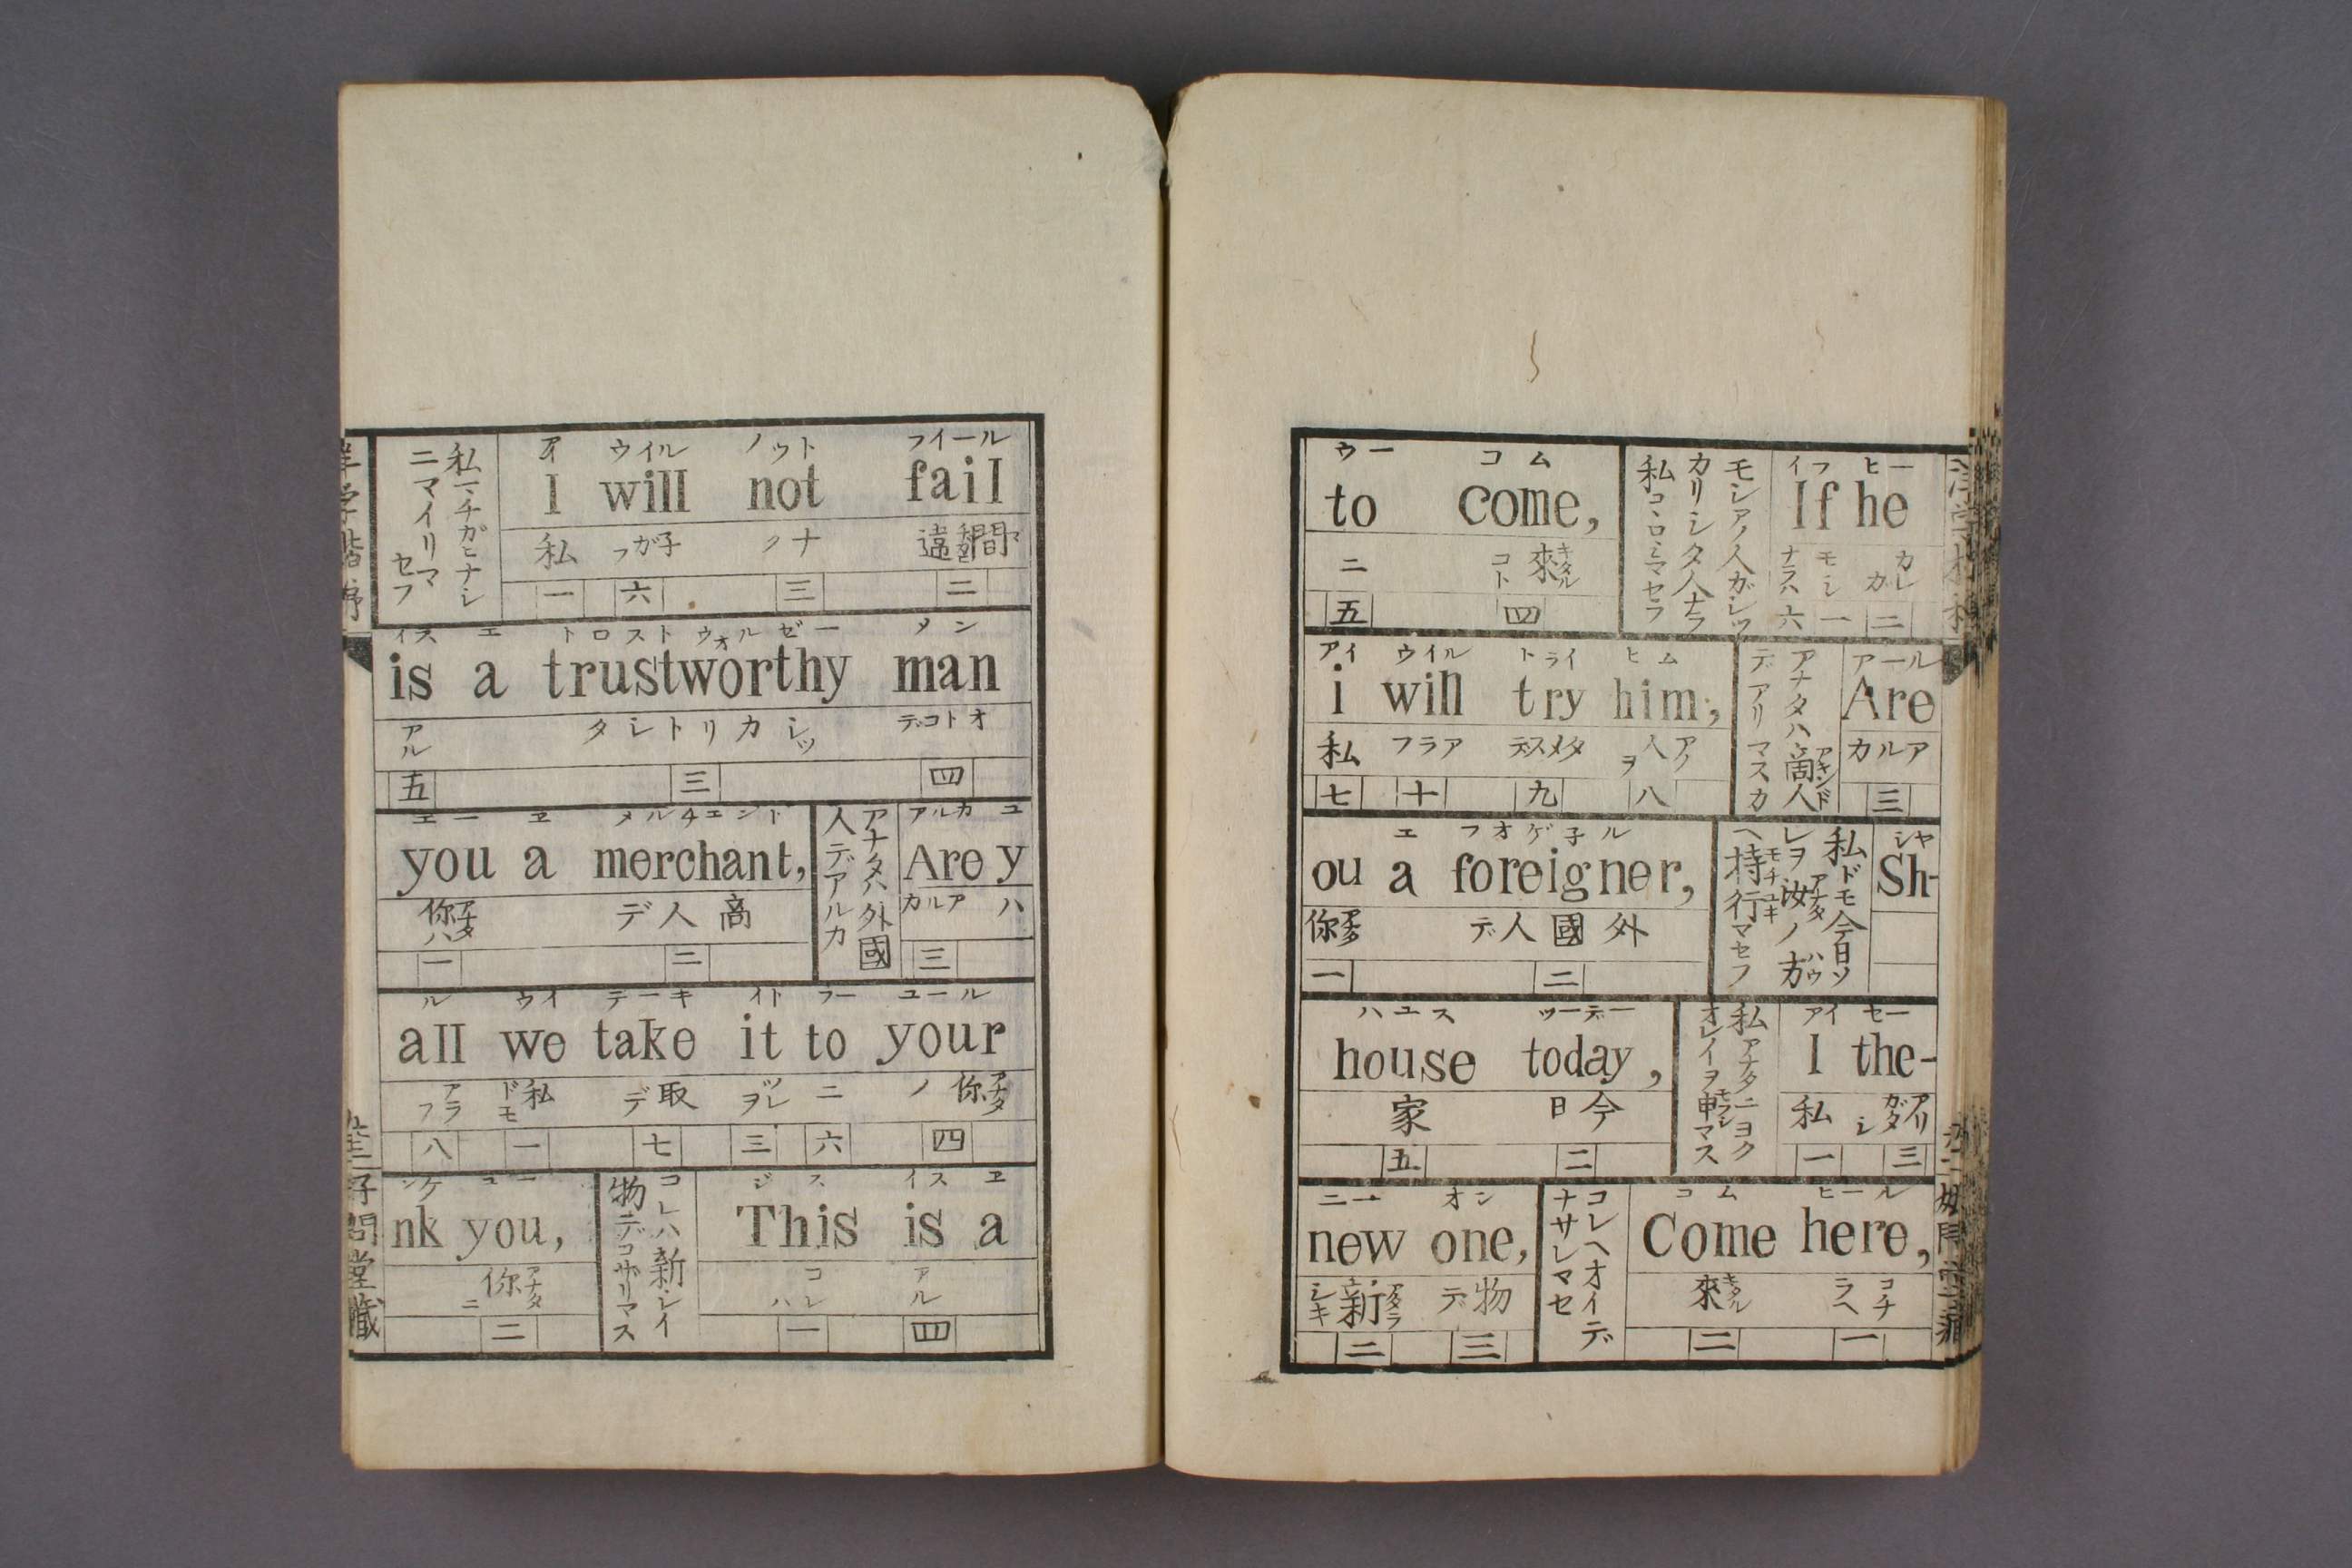 私マチガヒナシ
ニマイリマ
セフ
アイ ウイル ノウト フイール
I will not fail
私 フガ子 クナ 間違
一 六 三 二
イス エ トロスト ウォルゼー メン
is a trustworthy man
アル タシトリカシツ デコトオ
五 三 四
エー ヱ メルチエンド
you a merchant,
你アナタハ デ人商
一 二
アナタハ外國
人デアルカ
アルカ ユ
Are y
カルア ハ
三
ル ウイ テーキ イト ツー ユール
all we take it to your
アラフ 私ドモ デ取 ソレヲ ニ ノ你アナタ
八 一 七 三 六 四
ンケ ユー
nk you,
你アナタニ
二
コレハ新シイ
物デコザリマス
ジス イス ヱ
This is a
コレハ アル
一 四
ウー コム
to come,
ニ 來キタルコト
五 四
モシアノ人ガシツ
カリシタ人ナラ
私コヽロミマセフ
イフ ヒー
If he
モシナラハ カレカ
六 一 二
アイ ウイル トライ ヒム
i will try him;
私 フラア デスメタ アノ人ヲ
七 十 九 八
アナタハ商人アキンド
デアリマスカ
アール
Are
カルア
三
エ フオゲ子ル
ou a foreigner,
你アナタ デ人國外
一 二
私ドモ今日ソ
レヲ汝アナタノ方ハウ
ヘ持モチ行ユキマセフ
シヤ
Sh-
ハユス ツーデー
house today,
家 日今
五 二
私アナタニヨク
オレイヲ申モウシマス
アイ セー
I the-
私 アリガタシ
一 三
ニー オン
new one,
新アタラシキ デ物
二 三
コレヘオイデ
ナサレマセ
コム ヒール
Come here,
來キタル コチラヘ
二 一